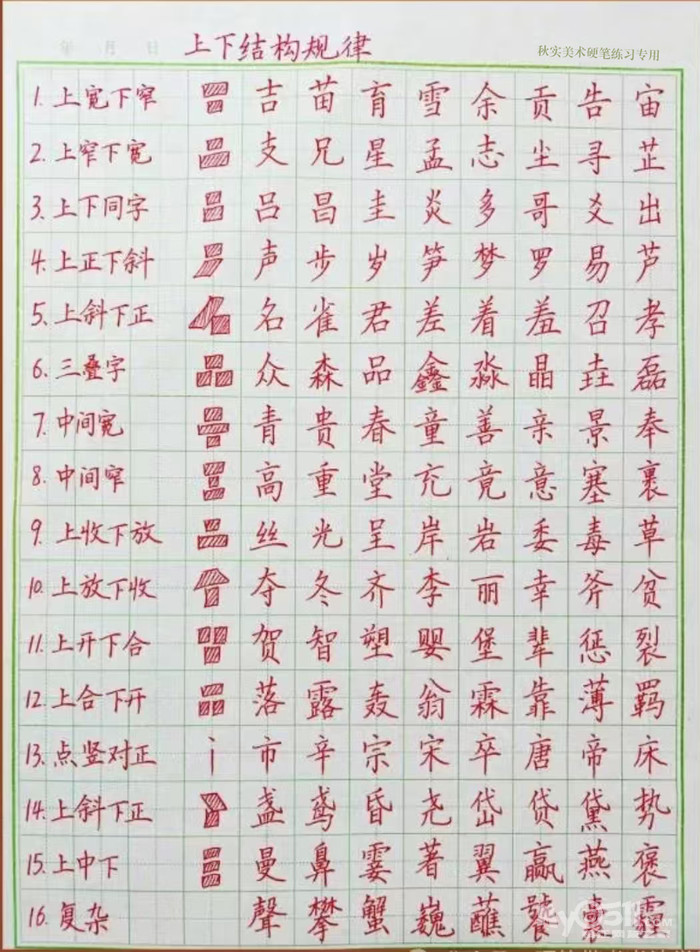 年 月 日 上下结构规律 秋实美术硬笔练习专用
1. 上宽下窄 吉 苗 育 雪 余 贡 告 宙
2. 上窄下宽 支 兄 星 孟 志 尘 寻 芷
3. 上下同字 吕 昌 圭 炎 多 哥 爻 出
4. 上正下斜 声 步 岁 笋 梦 罗 易 芦
5. 上斜下正 名 雀 君 差 着 羞 召 孝
6. 三叠字 众 森 品 鑫 淼 晶 垚 磊
7. 中间宽 青 贵 春 童 善 亲 景 奉
8. 中间窄 高 重 堂 充 竟 意 塞 裹
9. 上收下放 丝 光 呈 岸 岩 委 毒 草
10. 上放下收 夺 冬 齐 李 丽 幸 斧 贫
11. 上开下合 贺 智 塑 婴 堡 辈 惩 裂
12. 上合下开 落 露 轰 翁 霖 靠 薄 羁
13. 点竖对正 市 辛 宗 宋 卒 唐 帝 床
14. 上斜下正 盏 鸢 昏 尧 岱 贷 黛 势
15. 上中下 曼 鼻 霎 著 翼 赢 燕 褒
16. 复杂 聲 攀 蟹 巍 蘸 饕